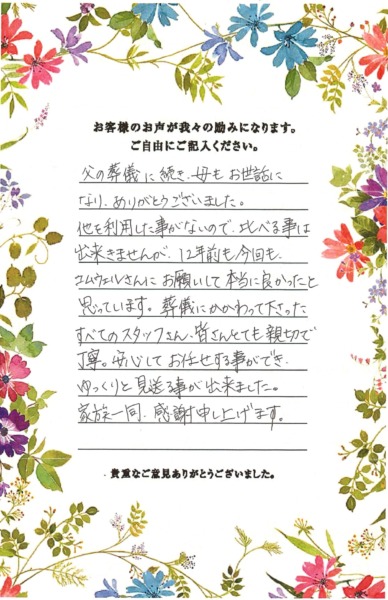 お客様のお声が我々の励みになります。
ご自由にご記入ください。
父の葬儀に続き、母もお世話に
なり、ありがとうございました。
他を利用した事がないので、比べる事は
出来きませんが、12年前も今回も、
エムウェルさんにお願いして本当に良かったと
思っています。葬儀にかかわって下さった
すべてのスタッフさん、皆さんとても親切で
丁寧。安心してお任せする事ができ、
ゆっくりと見送る事が出来ました。
家族一同、感謝申し上げます。
貴重なご意見ありがとうございました。